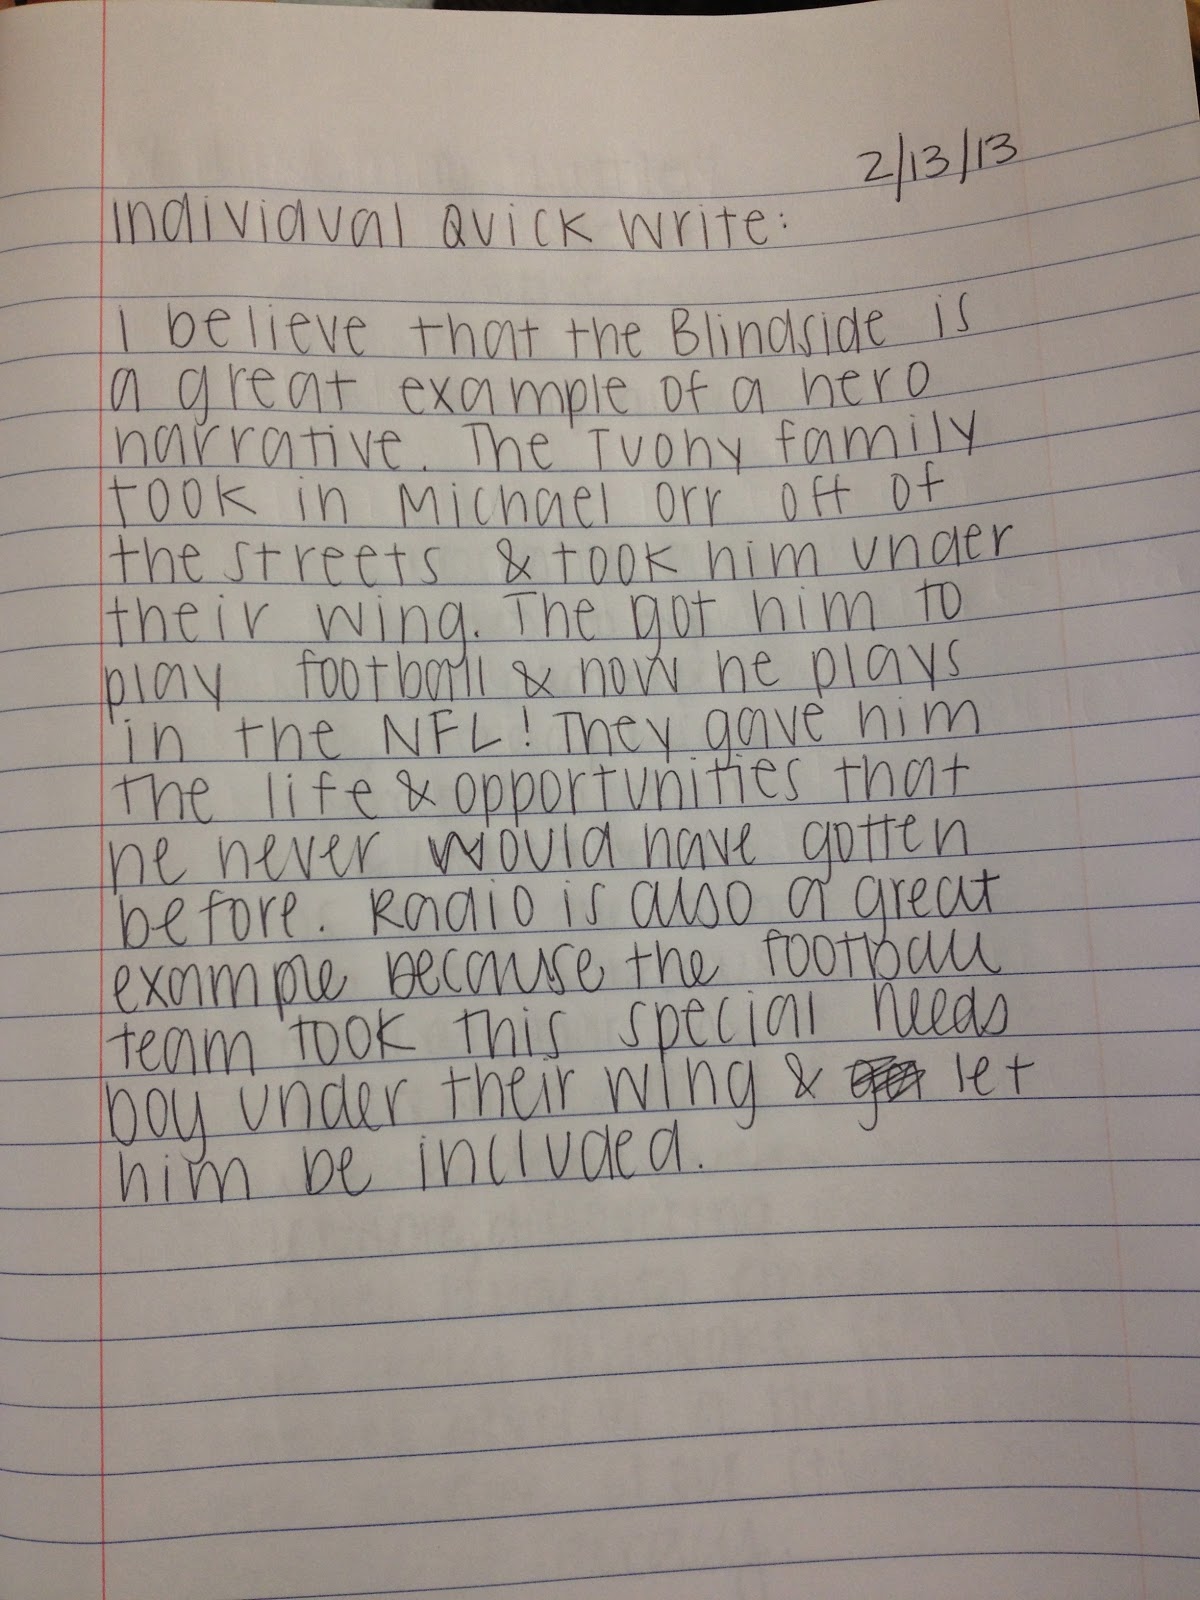 2/13/13
Individual Quick Write:
I believe that the Blindside is
a great example of a hero
narrative. The Tuohy family
took in Michael Orr off of
the streets & took him under
their wing. The got him to
play football & now he plays
in the NFL! They gave him
the life & opportunities that
he never would have gotten
before. Radio is also a great
example because the football
team took this special needs
boy under their wing & let
him be included.